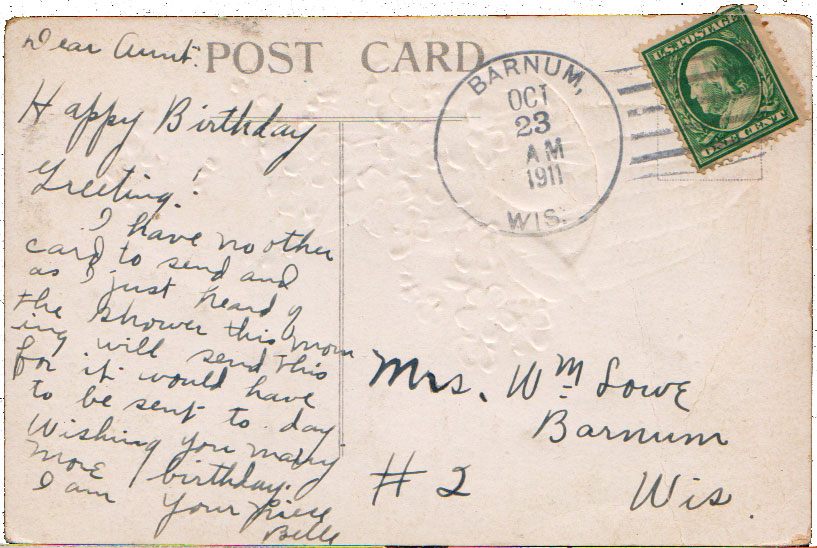 Dear Aunt:
POST CARD
Happy Birthday
Greeting!
I have no other
card to send and
as I just heard of
the shower this morn
ing will send this
for it would have
to be sent to day
Wishing you many
more birthday.
I am your Niece
Belle
BARNUM,
OCT
23
AM
1911
WIS.
U.S. POSTAGE
ONE CENT
Mrs. Wm Lowe
Barnum
#2 Wis.